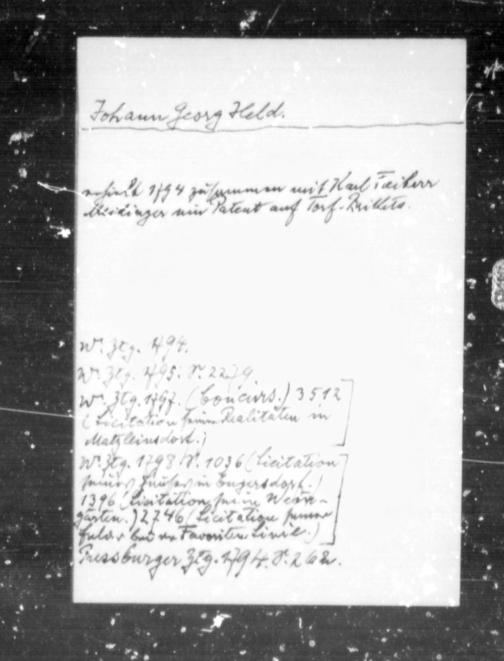 Johann Georg Held.
erhielt 1794 zusammen mit Karl Freiherr
Meidinger ein Patent auf Torf-Brikets.
W. Ztg. 1794.
W. Ztg. 1795. S. 2279
W. Ztg. 1797. (Concurs.) 3512
(Licitation seiner Realitäten in
Matzleinsdorf.)
W. Ztg. 1798. S. 1036 (Licitation
seines Hauses in Enzersdorf.)
1396 (Licitation seine Wein-
gärten.) 2746 (Licitation seiner
bei der Favoriten Linie.)
Pressburger Ztg. 1794. S. 262.